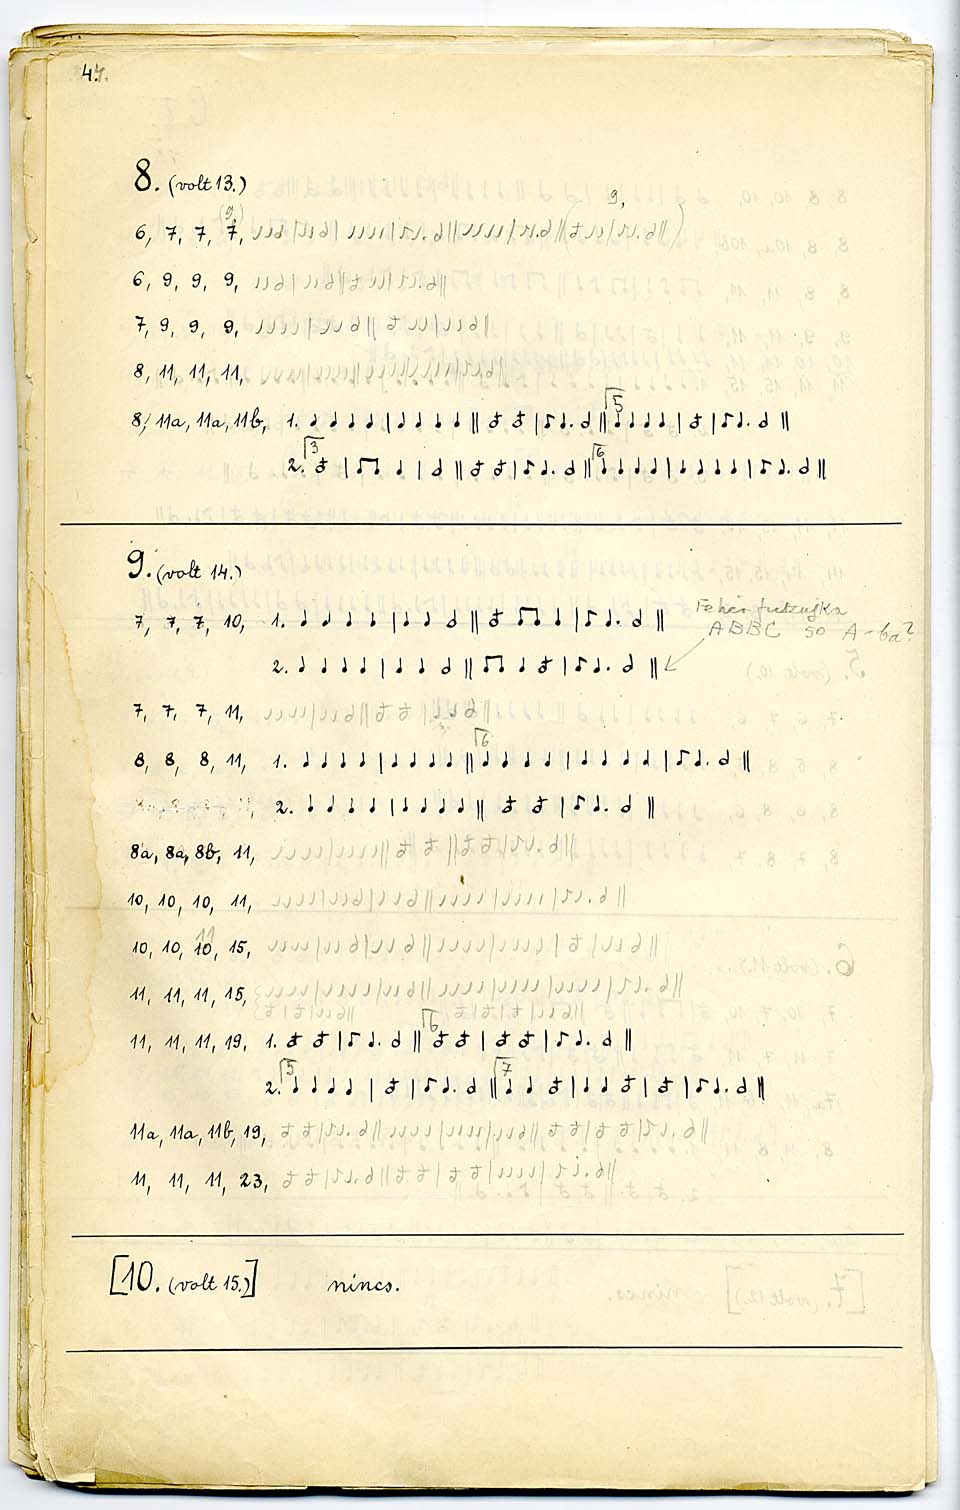 44.
8. (volt 13.)
(9,) 9,
6, 7, 7, 7,
6, 9, 9, 9,
7, 9, 9, 9,
8, 11, 11, 11,
8, 11a, 11a, 11b, 1. 5
2. 3 6
9. (volt 14.)
7, 7, 7, 10, 1. Fehér
ABBC so A-ba?
2.
7, 7, 7, 11,
8, 8, 8, 11, 1. 6
2.
8a, 8a, 8b, 11,
10, 10, 10, 11,
10, 10, 10, 15,
11, 11, 11, 15,
11, 11, 11, 19, 1. 6
2. 5 7
11a, 11a, 11b, 19,
11, 11, 11, 23,
[10. (volt 15.)] nincs.